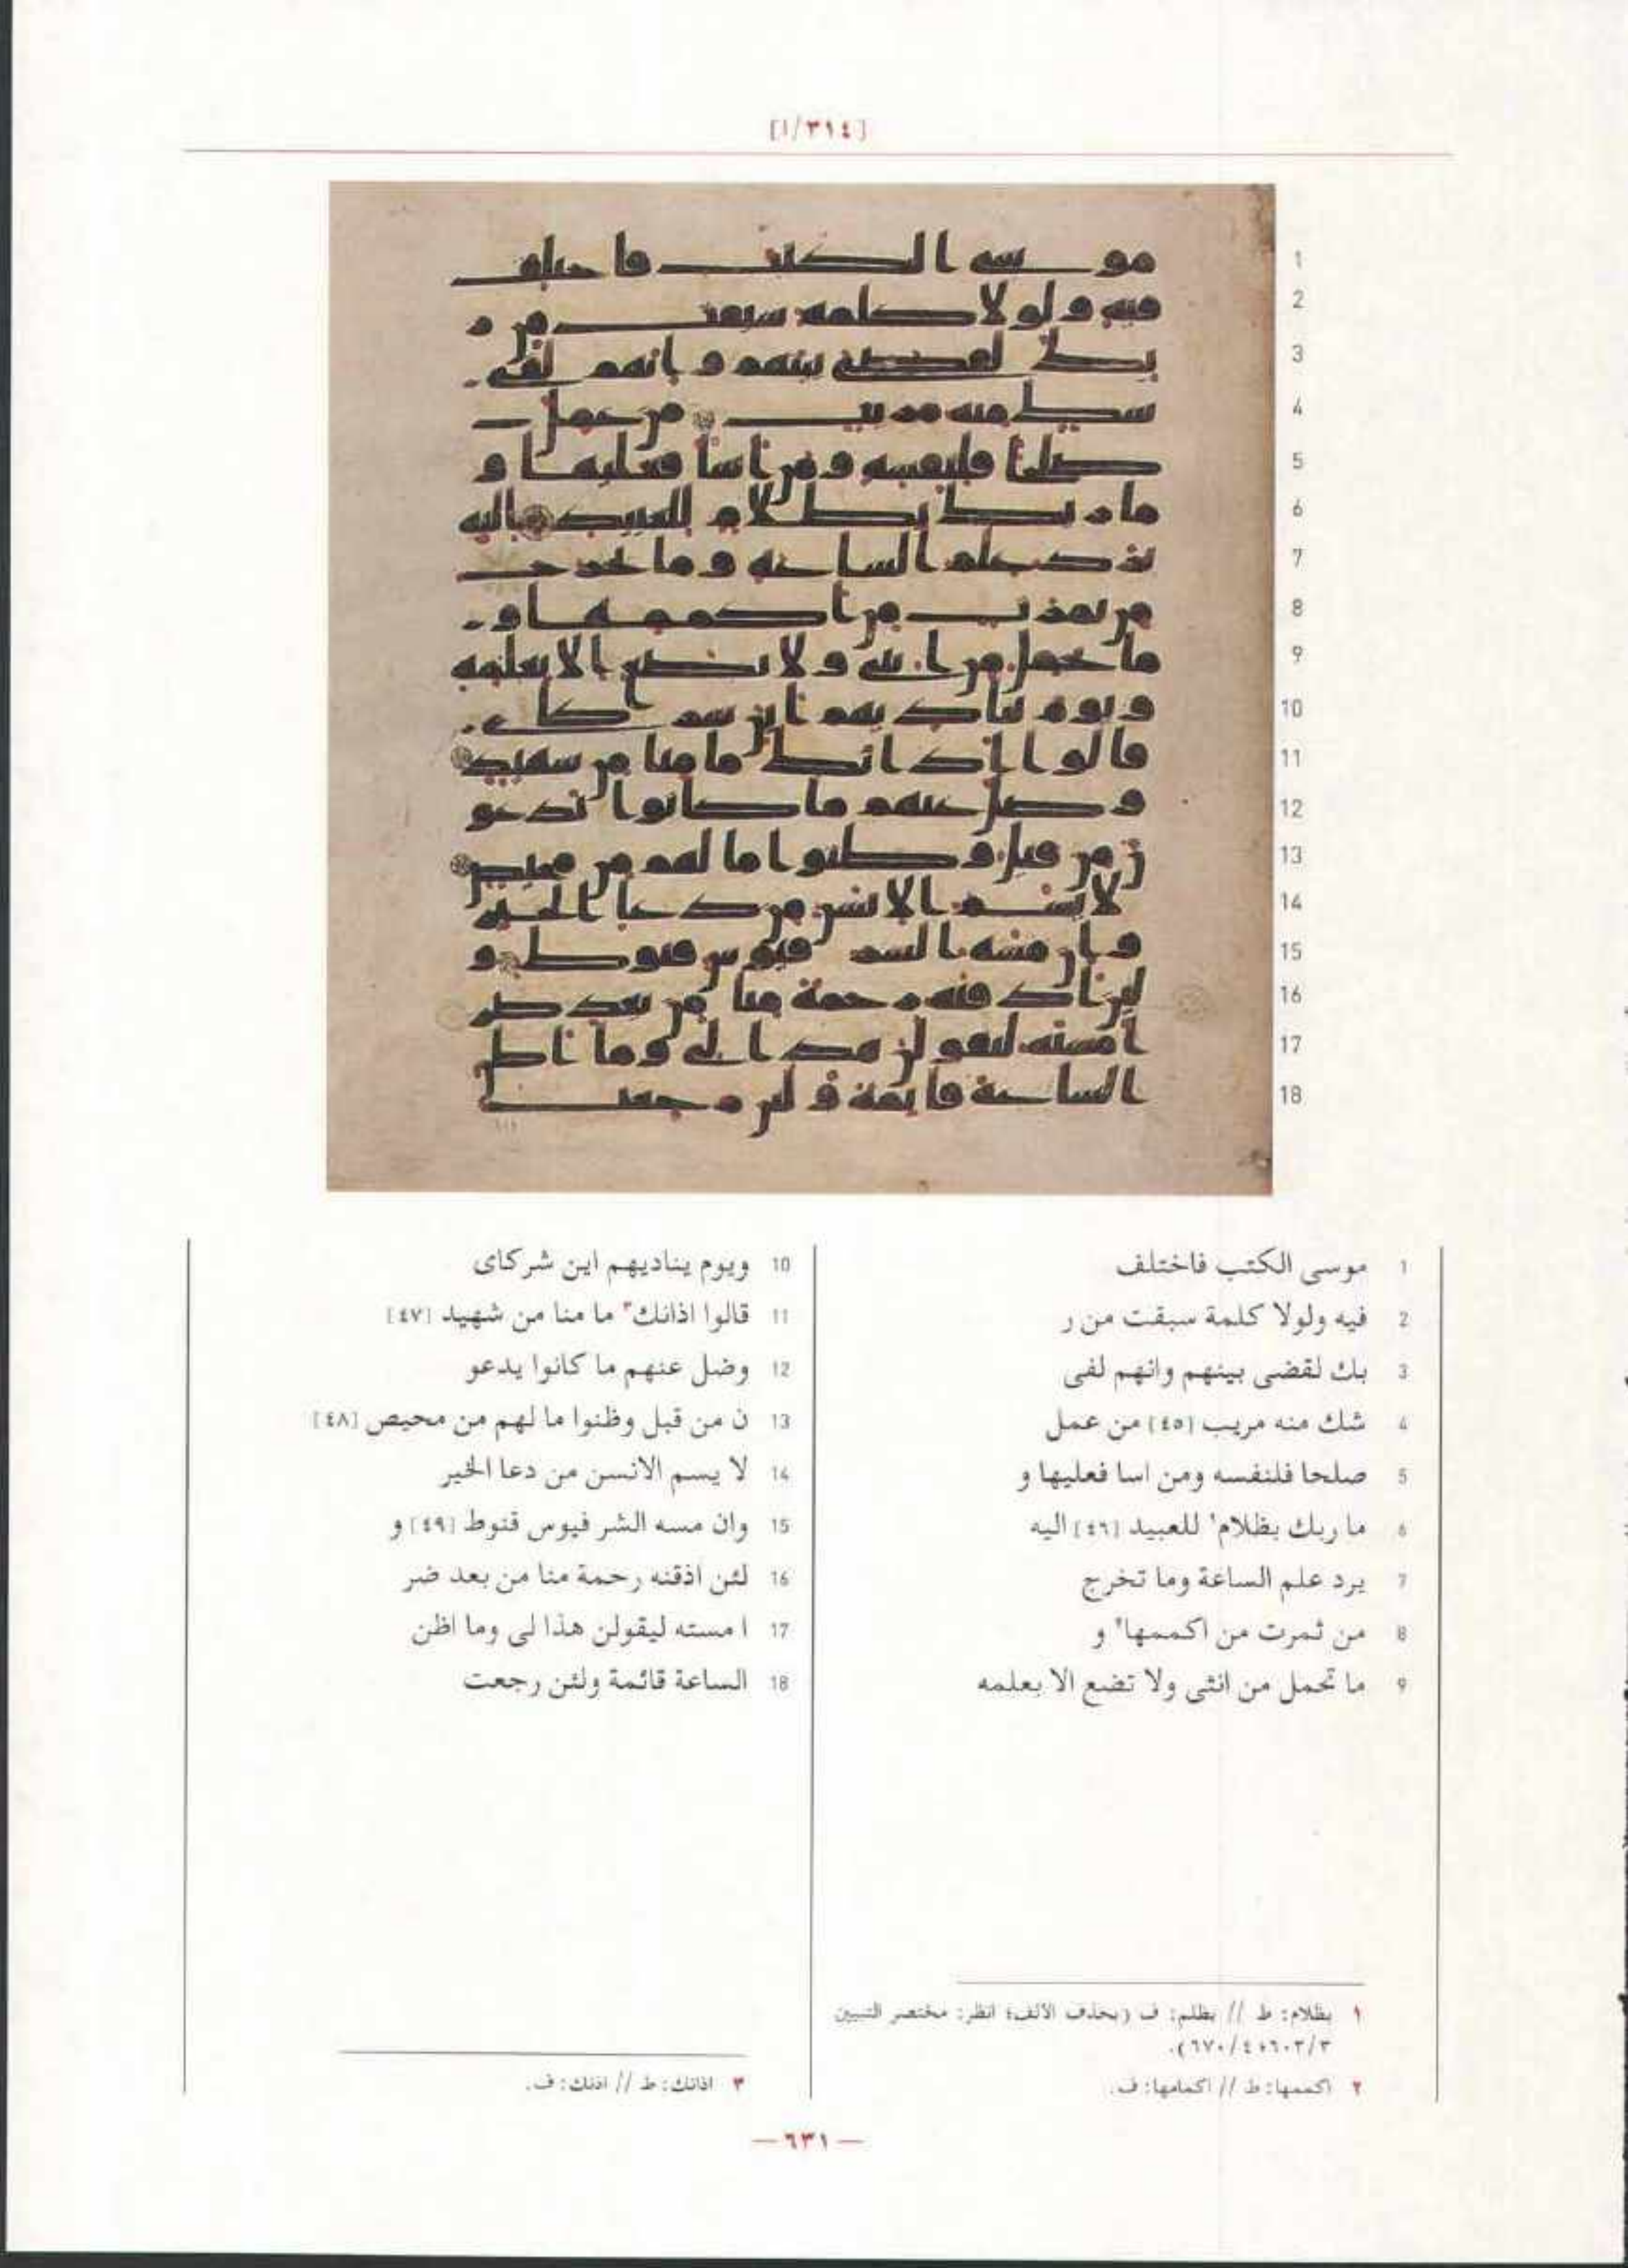 [٣١٤/ا]
1 موسى الكتب فاختلف
2 فيه ولولا كلمة سبقت من ر
3 بك لقضى بينهم وانهم لفى
4 شك منه مريب [٤٥] من عمل
5 صلحا فلنفسه ومن اسا فعليها و
6 ما ربك بظلام١ للعبيد [٤٦] اليه
7 يرد علم الساعة وما تخرج
8 من ثمرت من اكممها٢ و
9 ما تحمل من انثى ولا تضع الا بعلمه
10 ويوم يناديهم اين شركاى
11 قالوا اذانك٣ ما منا من شهيد [٤٧]
12 وضل عنهم ما كانوا يدعو
13 ن من قبل وظنوا ما لهم من محيص [٤٨]
14 لا يسم الانسن من دعا الخير
15 وان مسه الشر فيوس قنوط [٤٩] و
16 لئن اذقنه رحمة منا من بعد ضر
17 ا مسته ليقولن هذا لى وما اظن
18 الساعة قائمة ولئن رجعت
١ بظلام: ط // بظلم: ف (بحذف الألف؛ انظر: مختصر التبيين
٦٠٣/٣؛ ٦٧٠/٤).
٢ اكممها: ط // اكمامها: ف.
٣ اذانك: ط // اذنك: ف.
— ٦٣١ —